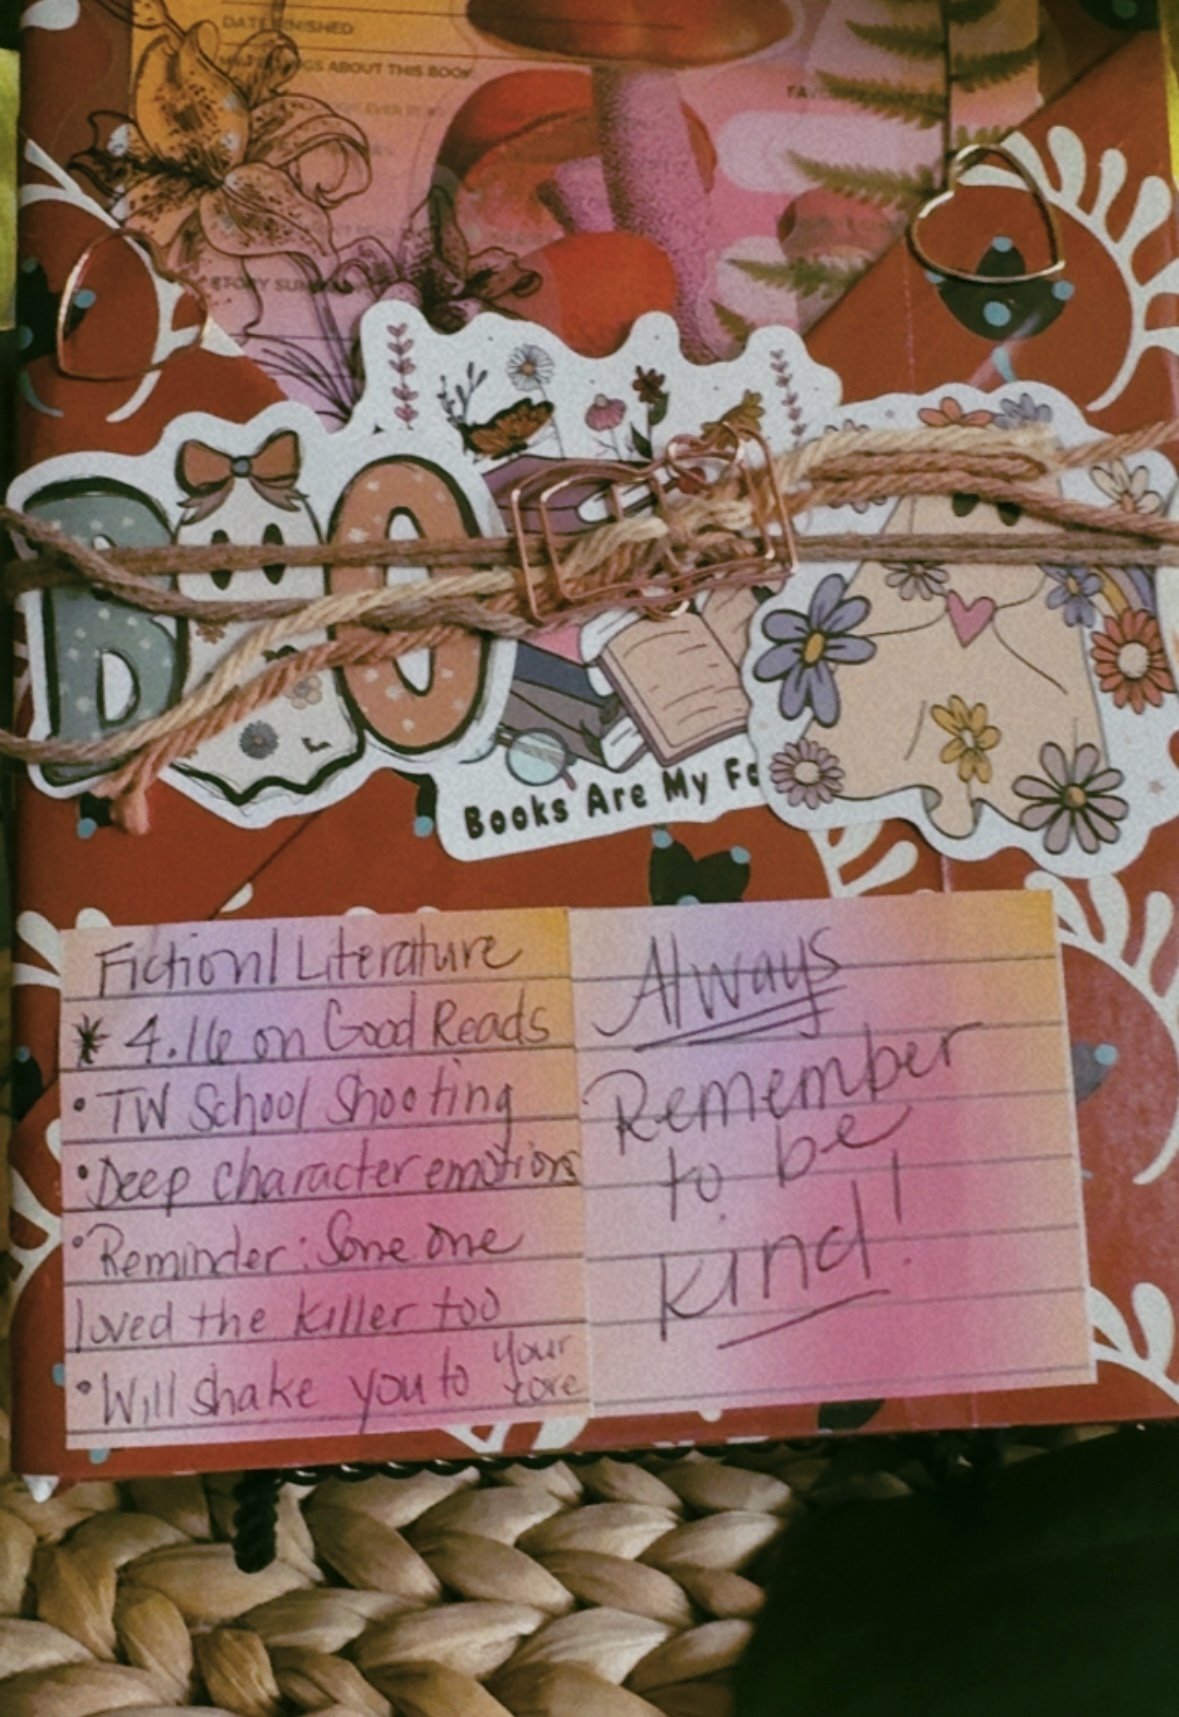 DATE FINISHED
ABOUT THIS BOOK
STORY
BOO
Books Are My
Fiction/Literature
* 4.16 on Good Reads
• TW School Shooting
• Deep character emotions
• Reminder: Some one
loved the killer too
• Will shake you to your
core
Always
Remember
to be
Kind!